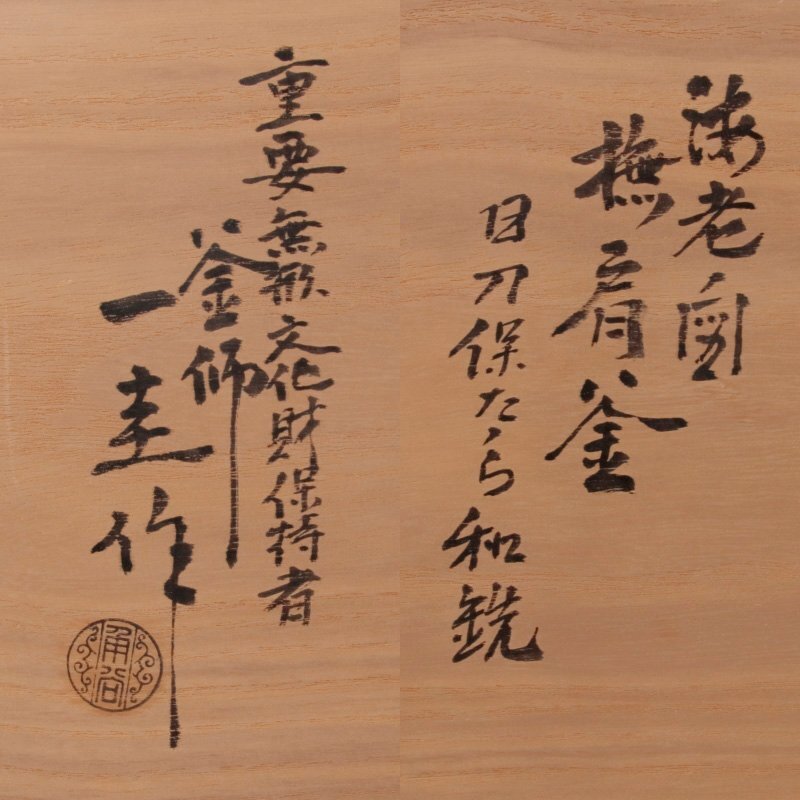 海老図
撫肩釜
日刀保たゝら和銑
重要無形文化財保持者
釜師
一圭作
角谷